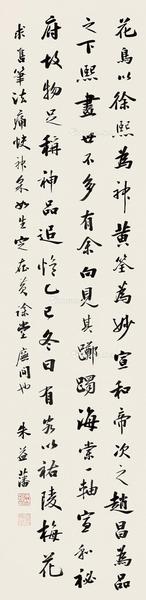 花鳥以徐熙為神黃筌為妙宣和帝次之趙昌為品
之下熙畫世不多有余向見其躑躅海棠一軸宣和秘
府故物足稱神品追憶乙巳冬日有客以祐陵梅花
求售筆法痛快神采如生定在黃徐堂廡間也
朱益藩